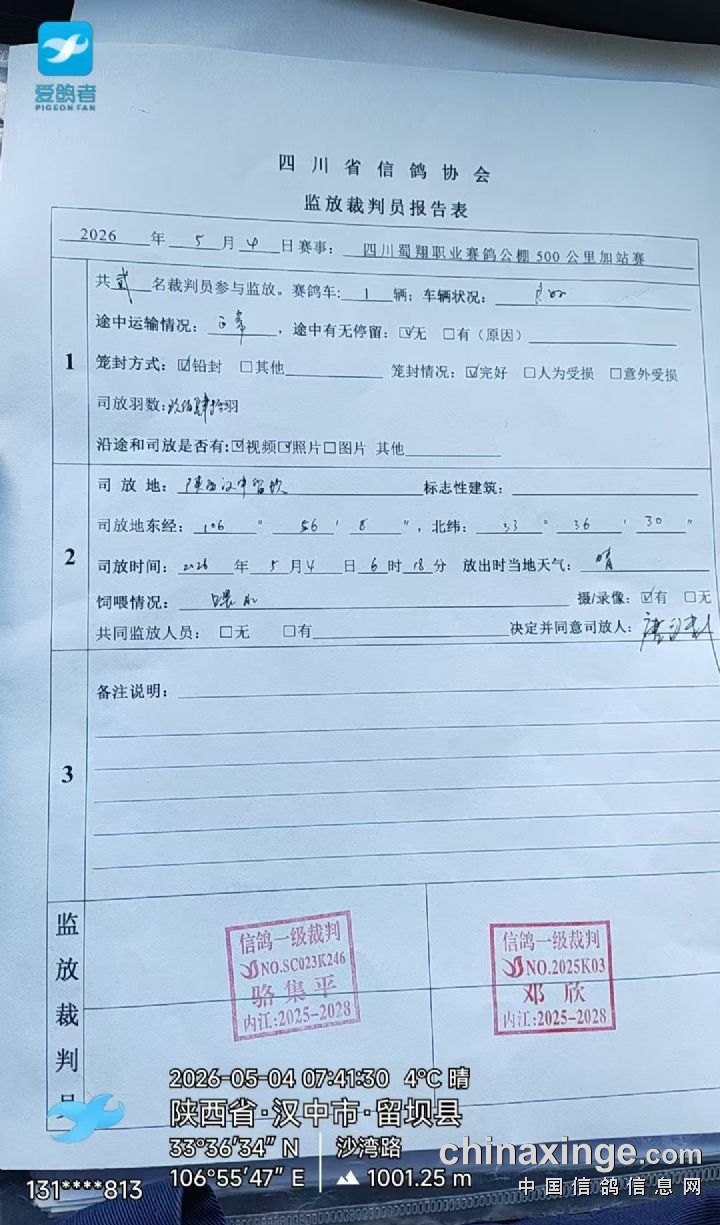 爱鸽者
PIGEON FAN
四川省信鸽协会
监放裁判员报告表
2026 年 5 月 4 日赛事：四川蜀翔职业赛鸽公棚 500 公里加站赛
1
共 贰 名裁判员参与监放。赛鸽车: 1 辆；车辆状况： 良好
途中运输情况： 正常 ，途中有无停留：☑无 □有（原因）
笼封方式：☑铅封 □其他 笼封情况：☑完好 □人为受损 □意外受损
司放羽数:玖佰肆拾羽
沿途和司放是否有:☑视频☑照片□图片 其他
2
司 放 地： 陕西汉中留坝 标志性建筑：
司放地东经： 106 ° 56 ′ 8 ″，北纬： 33 ° 36 ′ 30 ″
司放时间： 2026 年 5 月 4 日 6 时 18 分 放出时当地天气： 晴
饲喂情况： 喂水 摄/录像：☑有 □无
共同监放人员： □无 □有 决定并同意司放人：
3
备注说明：
监放裁判员
信鸽一级裁判
NO.SC023K246
骆集平
内江:2025-2028
信鸽一级裁判
NO.2025K03
邓欣
内江:2025-2028
2026-05-04 07:41:30 4°C 晴
陕西省·汉中市·留坝县
33°36'34" N 沙湾路
106°55'47" E 1001.25 m
131****813
chinaxinge.com
中国信鸽信息网